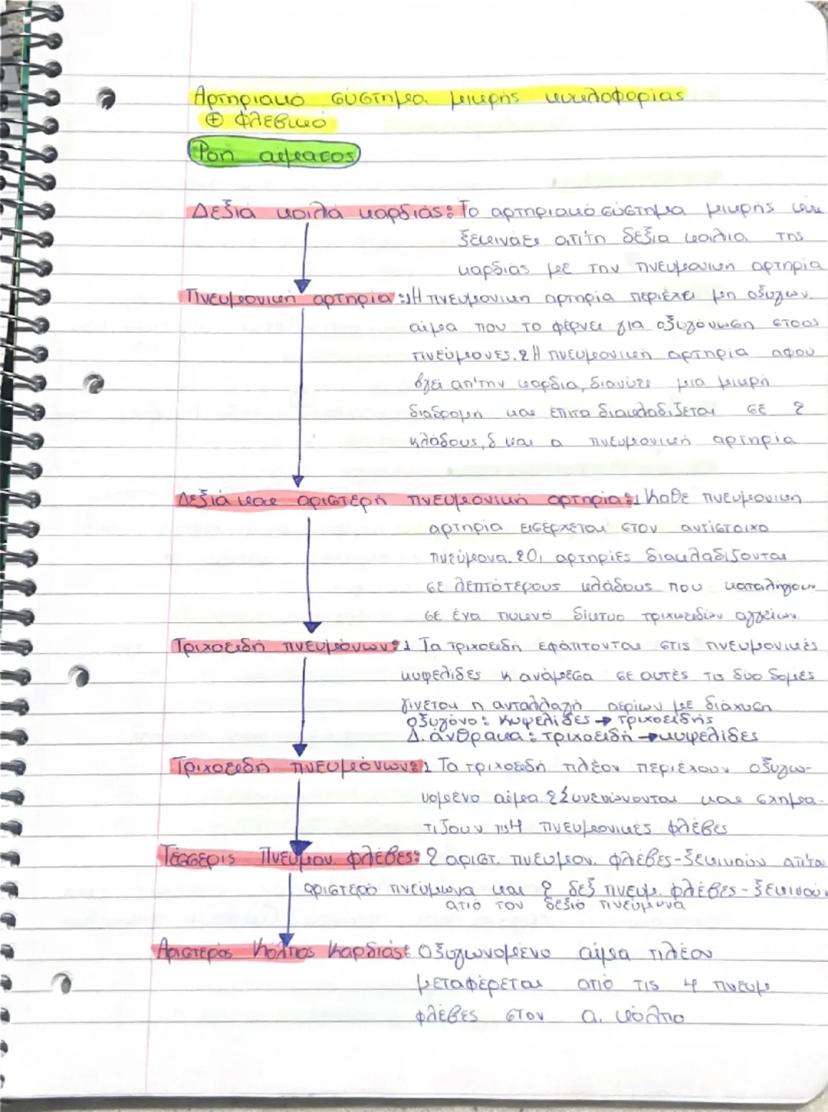 Αρτηριακό σύστημα μικρής κυκλοφορίας
⊕ φλεβικό
Ροή αίματος
Δεξιά κοιλά καρδιάς: Το αρτηριακό σύστημα μικρής
ξεκινάει απ'τη δεξιά κοιλία της
καρδιάς με την πνευμονική αρτηρία
Πνευμονική αρτηρία: 1 Η πνευμονική αρτηρία περιέχει μη οξυγων.
αίμα που το φέρνει για οξυγόνωση στους
πνεύμονες. 2 Η πνευμονική αρτηρία αφού
βγεί απ'την καρδιά, διανύει μια μικρή
διαδρομή και έπιτα διακλαδίζεται σε 2
κλάδους, δ και α πνευμονική αρτηρία
Δεξιά και αριστερή πνευμονική αρτηρία: 1 Κάθε πνευμονική
αρτηρία εισέρχεται στον αντίστοιχο
πνεύμονα. 2 Οι αρτηρίες διακλαδίζονται
σε λεπτότερους κλάδους που καταλήγουν
σε ένα πυκνό δίκτυο τριχοειδών αγγείων
Τριχοειδή πνευμόνων: 1 Τα τριχοειδή εφάπτονται στις πνευμονικές
κυψελίδες κ ανάμεσα σε αυτές τις δυο δομές
γίνεται η ανταλλαγή αερίων με διάχυση
οξυγόνο: κυψελίδες → τριχοειδής
Δ. άνθρακα: τριχοειδή → κυψελίδες
Τριχοειδή πνευμόνων: 1 Τα τριχοειδή πλέον περιέχουν οξυγω-
νομένο αίμα 2 Συνενώνονται και σχημα-
τίζουν τις 4 πνευμονικές φλέβες
Τέσσερις Πνευμον. φλέβες: 2 αριστ. πνευμον. φλέβες-ξεκινούν απ'το
αριστερό πνεύμονα και 2 δεξ πνευμ. φλέβες-ξεκινούν
από τον δεξιό πνεύμονα
Αριστερός Κόλπος Καρδιάς: Οξυγωνομένο αίμα πλέον
μεταφέρεται από τις 4 πνευμ
φλέβες στον α. κόλπο